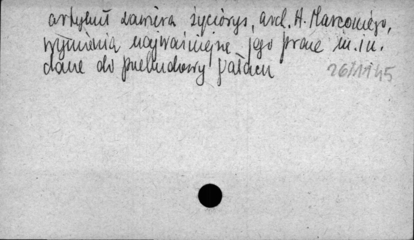 artykuł zawiera życiorys, arch. H. Marconiego,
wymienia najważniejsze jego prace m.in.
dane do przebudowy pałacu
26/11/45